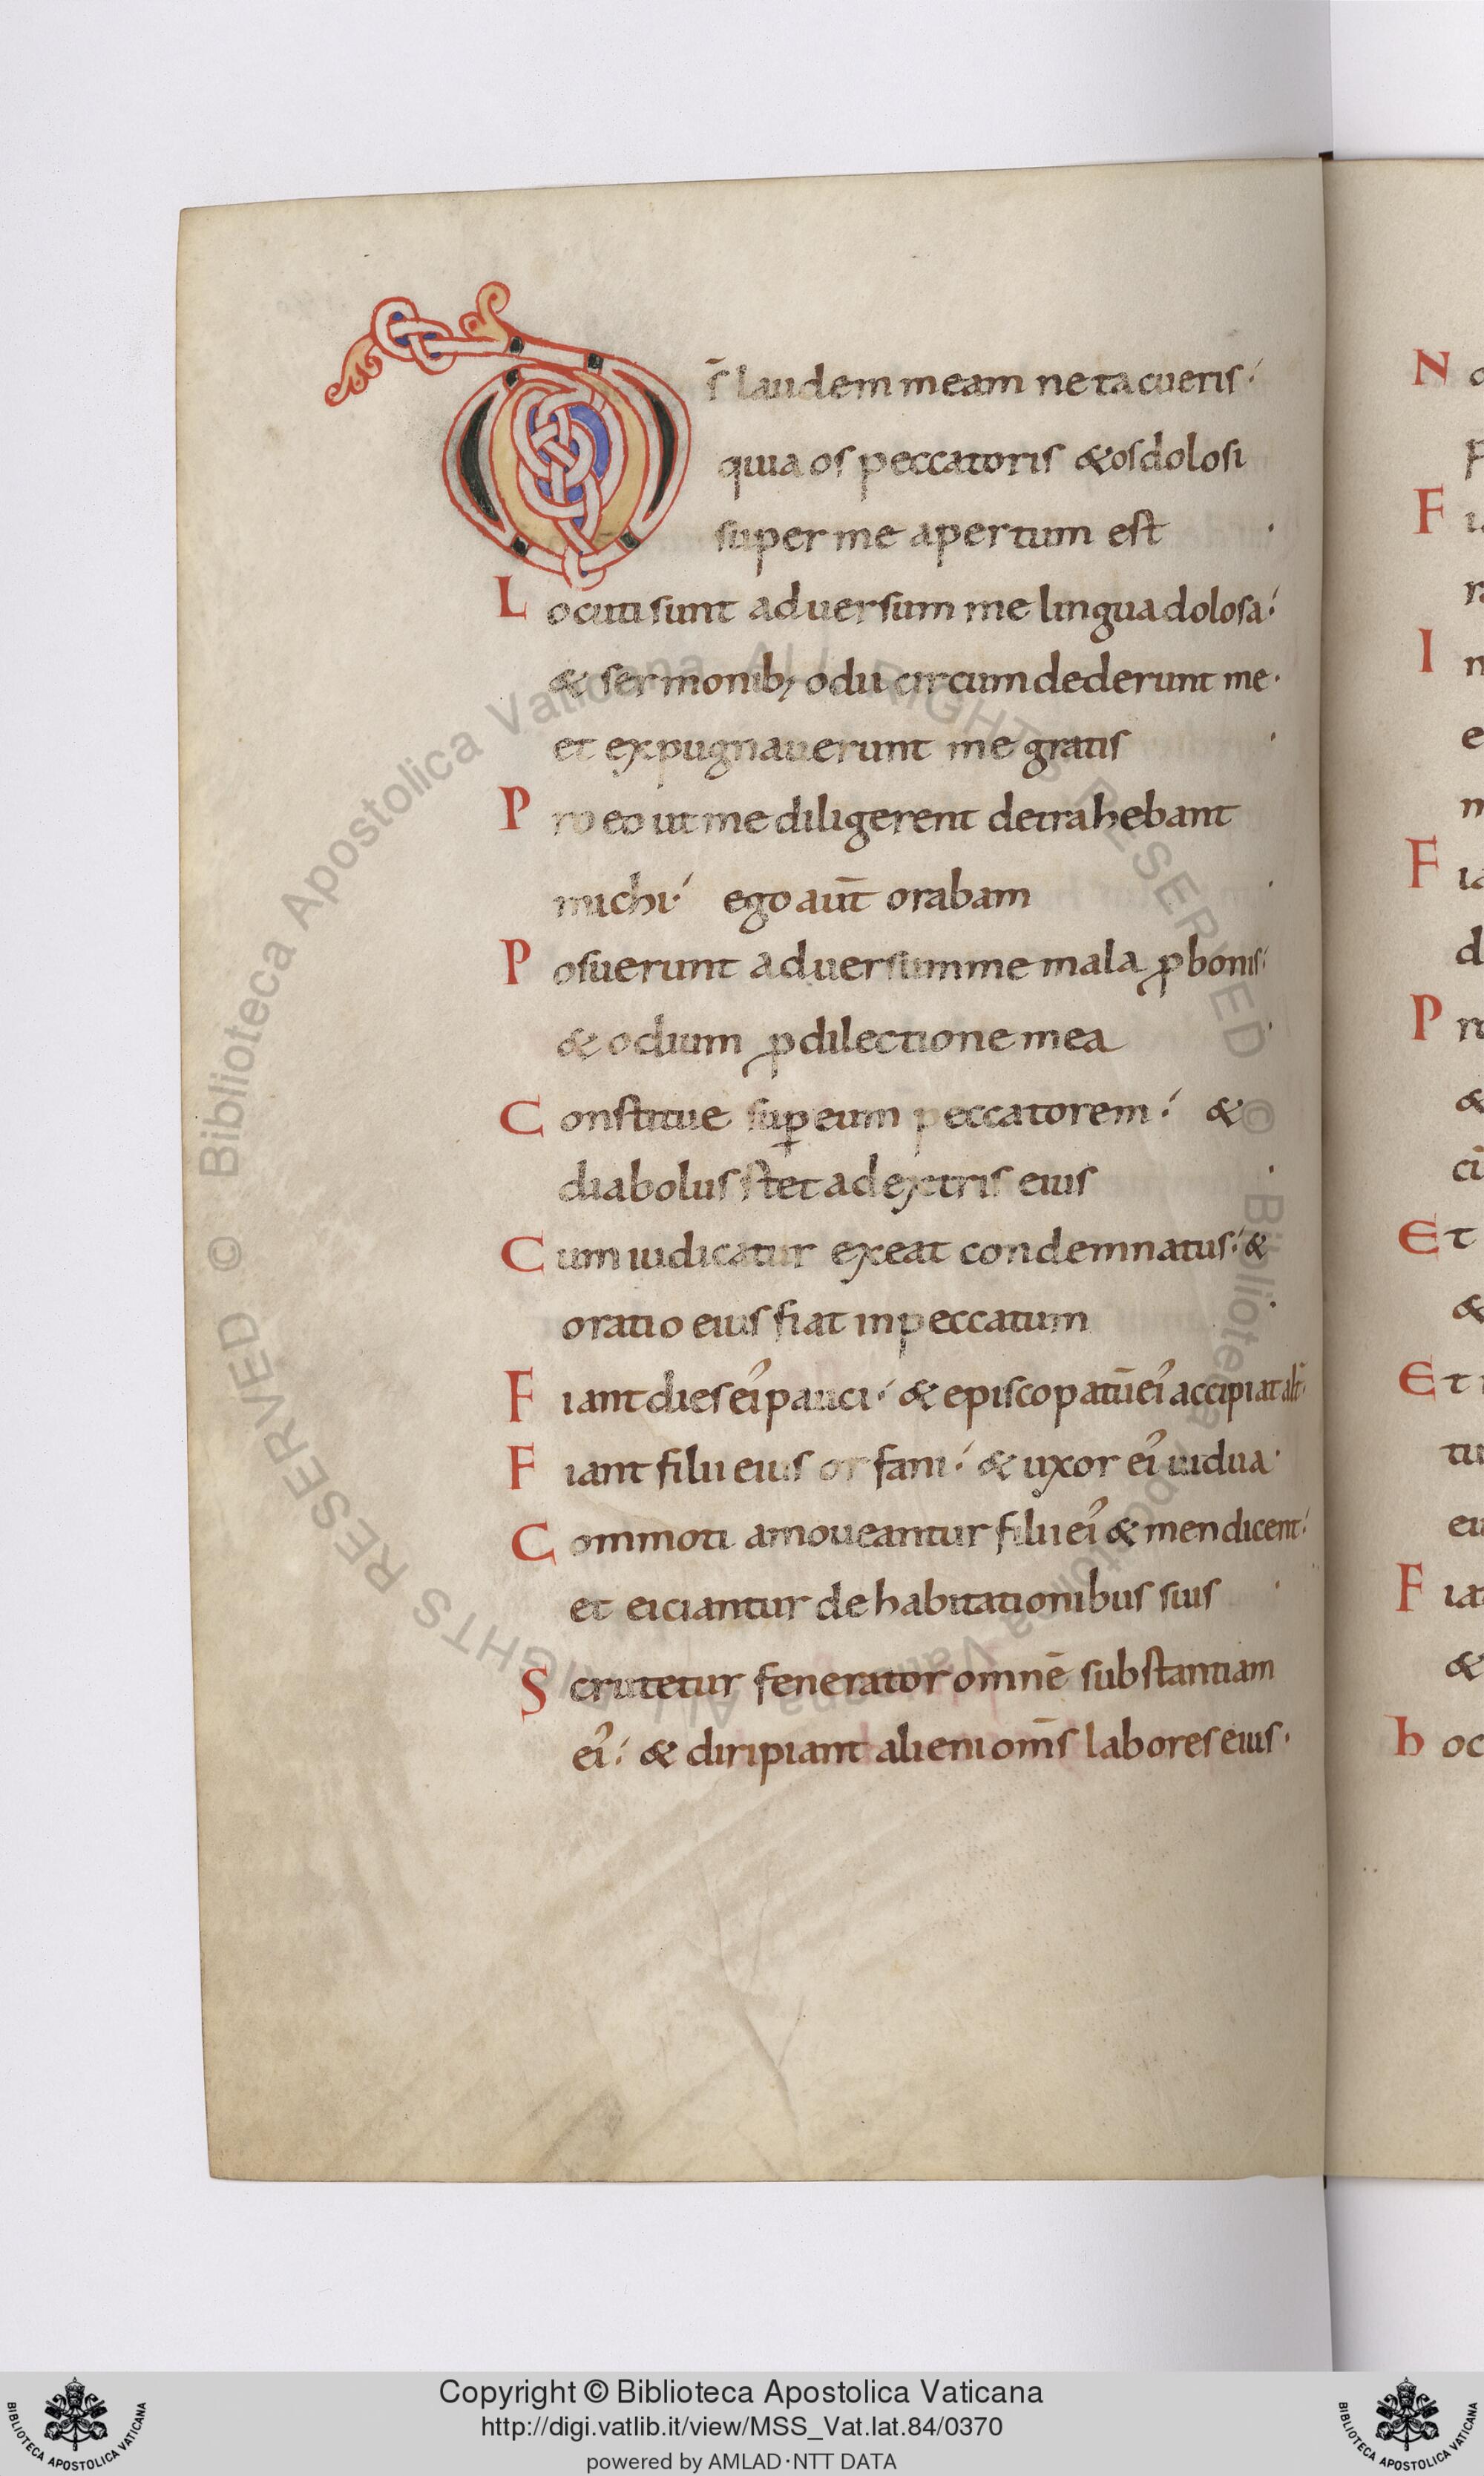 Ds̄ laudem meam ne tacueris·
quia os peccatoris & os dolosi
super me apertum est ·
Locuti sunt aduersum me lingua dolosa·
& sermonib; odii circumdederunt me·
et expugnauerunt me gratis ·
Pro eo ut me diligerent detrahebant
michi· ego aut̄ orabam ·
Posuerunt aduersum me mala ꝓ bonis·
& odium ꝓ dilectione mea ·
Constitue suꝑ eum peccatorem· &
diabolus stet a dextris eius ·
Cum iudicatur exeat condemnatus· &
oratio eius fiat in peccatum ·
Fiant dies ei᾽ pauci· & episcopatū ei᾽ accipiat alt̄·
Fiant filii eius orfani· & uxor ei᾽ uidua·
Commoti amoueantur filii ei᾽ & mendicent·
et eiciantur de habitationibus suis ·
Scrutetur fenerator omnē substantiam
ei᾽· & diripiant alieni om̄s labores eius·
N
F
I
F
P
&
Et
&
Et
F
&
hoc
© Biblioteca Apostolica Vaticana ALL RIGHTS RESERVED © Biblioteca Apostolica Vaticana ALL RIGHTS RESERVED
Copyright © Biblioteca Apostolica Vaticana
http://digi.vatlib.it/view/MSS_Vat.lat.84/0370
powered by AMLAD·NTT DATA
BIBLIOTECA APOSTOLICA VATICANA
BIBLIOTECA APOSTOLICA VATICANA